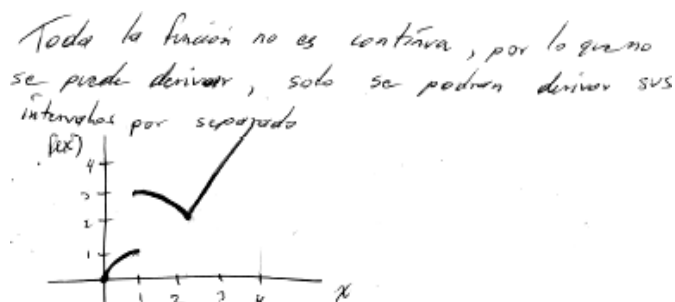 Toda la función no es continua, por lo que no
se puede derivar, solo se podran derivar sus
intervalos por separado
f(x)
4
3
2
1
1 2 3 4 x